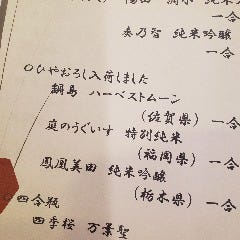 一合
奏乃智 純米吟醸
一合
○ひやおろし入荷しました
鍋島 ハーベストムーン
(佐賀県) 一合
庭のうぐいす 特別純米
(福岡県) 一合
鳳凰美田 純米吟醸
(栃木県) 一合
○四合瓶
四季桜 万景聖